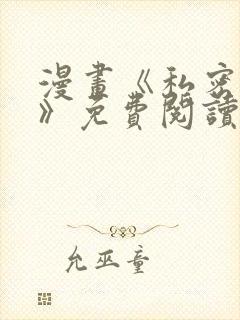 漫畫《私密
》免費閱讀
允巫童